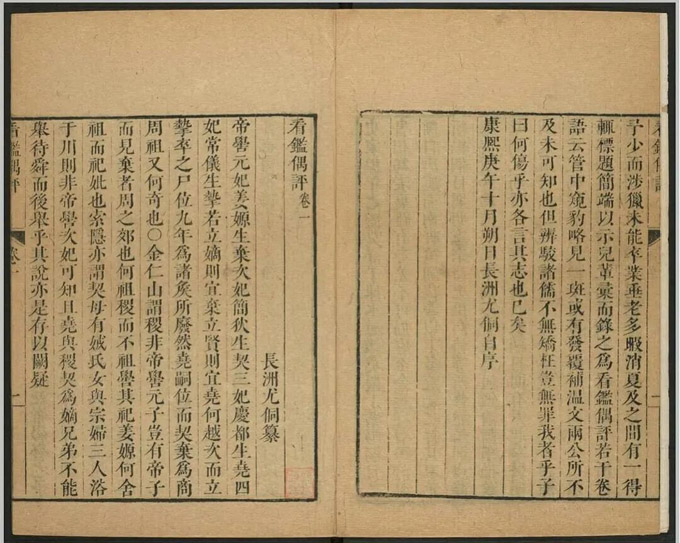 看鑑偶評
予少而涉獵未能卒業垂老多暇消夏及之間有一得
輒標題簡端以示兒輩彙而錄之為看鑑偶評若干卷
語云管中窺豹略見一斑或有發覆補温文兩公所不
及未可知也但辨駁諸儒不無矯枉豈無罪我者乎子
曰何傷乎亦各言其志也已矣
康熙庚午十月朔日長洲尤侗自序
看鑑偶評卷一
長洲尤侗纂
帝嚳元妃姜嫄生棄次妃簡狄生契三妃慶都生堯四
妃常儀生摯若立嫡則宜棄立賢則宜堯何越次而立
摯卒之尸位九年為諸矦所廢然堯嗣位而契棄為商
周祖又何奇也〇金仁山謂稷非帝嚳元子豈有帝子
而見棄者周之郊也何祖稷而不祖嚳其祀姜嫄何舍
祖而祀妣也索隱亦謂契母有娀氏女與宗婦三人浴
于川則非帝嚳次妃可知且堯與稷契為嫡兄弟不能
舉待舜而後舉乎其說亦是存以闕疑
看鑑偶評
卷一
一